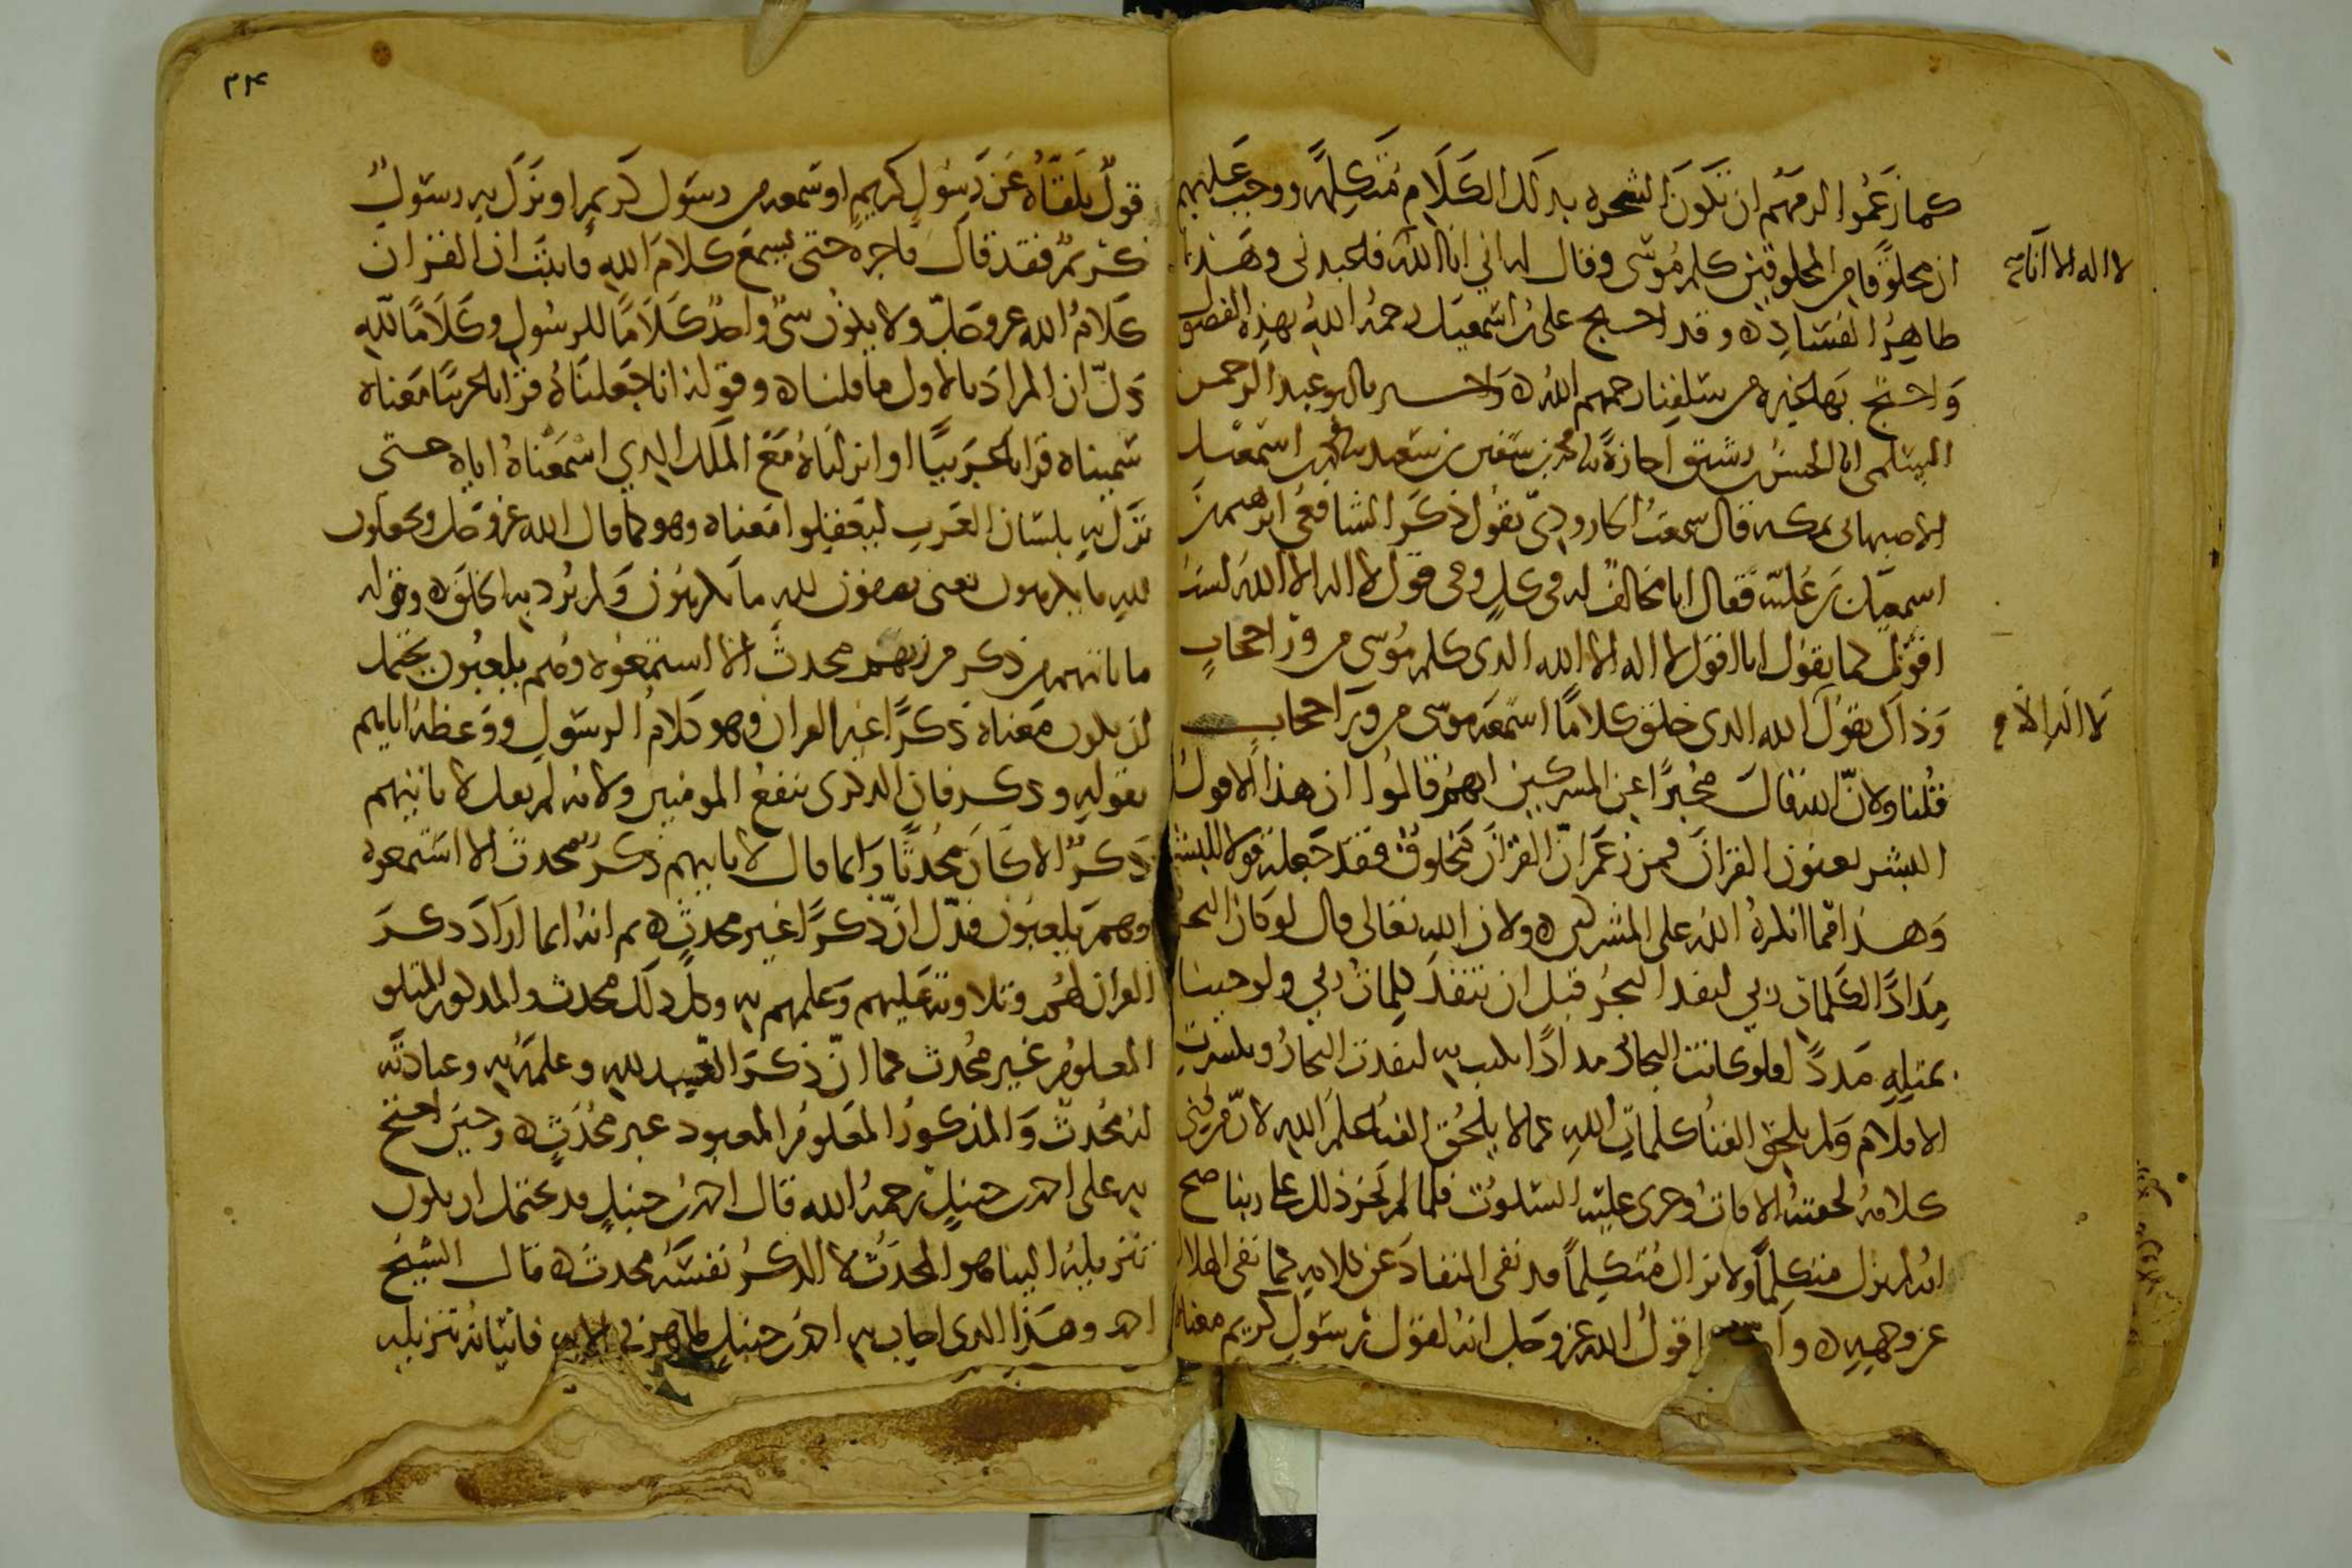 كما زعموا لزمهم ان تكون الشجرة بذلك الكلام متكلمة ووجب عليهم
ان مخلوقا من المخلوقين كلم موسى وقال له اني انا الله فاعبدني وهذا
لا اله الا انا صح
ظاهر الفساد ه وقد احتج علي بن اسمعيل رحمه الله بهذه الفصول
واحتج بها غيره من سلفنا رحمهم الله ه واخبرنا ابو عبد الرحمن
السلمي انا الحسن بن رشيق اجازة نا محمد بن سفين بن سعيد نا محمد بن اسمعيل
الاصبهاني بمكة قال سمعت الجارودي يقول ذكر الشافعي ابرهيم بن
اسمعيل بن علية فقال انا مخالف له في كل وفي قول لا اله الا الله لست
اقول كما يقول انا اقول لا اله الا الله الذي كلم موسى من ورا حجاب
وذاك يقول الله الذي خلق كلاما اسمعه موسى من ورا حجاب
لا اله الا م
قلنا ولان الله قال مخبرا عن المشركين انهم قالوا ان هذا الا قول
البشر يعنون القران فمن زعم ان القران مخلوق فقد جعله قولا للبشر
وهذا مما انكره الله على المشركين ه ولان الله تعالى قال لو كان البحر
مدادا لكلمات ربي لنفد البحر قبل ان تنفد كلمات ربي ولو جينا
بمثله مددا فلو كانت البحار مدادا يكتب به لنفدت البحار وتكسرت
الاقلام ولم يلحق الفنا كلمات الله كما لا يلحق الفنا علم الله لان من فني
كلامه لحقته الافات وجرى عليه السكوت فلما لم يجز ذلك على ربنا صح
انه لم يزل متكلما ولا يزال متكلما وقد نفى النفاد عن كلامه كما نفى الهلاك
عن وجهه ه وا قول الله عز وجل انه لقول رسول كريم معناه
٢٤
قول تلقاه عن رسول كريم او سمعه من رسول كريم او نزل به رسول
كريم فقد قال فاجره حتى يسمع كلام الله فاثبت ان القران
كلام الله عز وجل ولا يكون شي واحد كلاما للرسول وكلاما لله
دل ان المراد بالاول ما قلناه وقوله انا جعلناه قرانا عربيا معناه
سميناه قرانا عربيا او انزلناه مع الملك الذي اسمعناه اياه حتى
نزل به بلسان العرب ليعقلوا معناه وهو كما قال الله عز وجل ويجعلون
لله ما يكرهون يعني يصفون لله ما يكرهون ولم يرد به الخلق ه وقوله
ما ياتيهم من ذكر من ربهم محدث الا استمعوه وهم يلعبون يحتمل
ان يكون معناه ذكرا غير القران وهو كلام الرسول ووعظه اياهم
بقوله وذكر فان الذكرى تنفع المومنين ولانه لم يقل لا ياتيهم
ذكر الا كان محدثا وانما قال لا ياتيهم ذكر محدث الا استمعوه
وهم يلعبون فدل ان ذكرا غير محدث ه ثم انه انما اراد ذكر
القران لهم وتلاوته عليهم وعلمهم به وكل ذلك محدث والمذكور المتلو
المعلوم غير محدث كما ان ذكر العبد لله وعلمه به وعبادته
له محدث والمذكور المعلوم المعبود غير محدث ه وحين احتج
به على احمد بن حنبل رحمه الله قال احمد بن حنبل قد يحتمل ان يكون
تنزيله الينا هو المحدث لا الذكر نفسه محدث ه قال الشيخ
احمد وهذا الذي اجاب به احمد بن حنبل ظاهر في الاية فاتيانه تنزيله